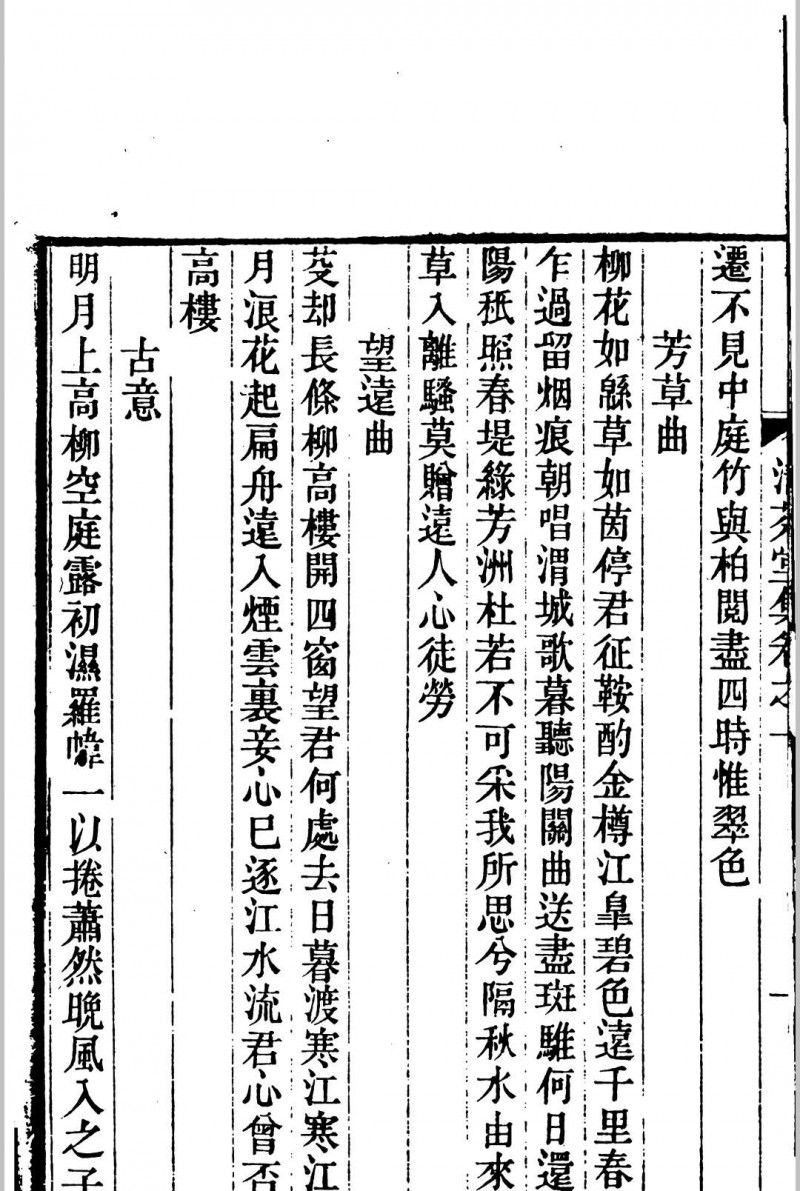 遷不見中庭竹與柏閱盡四時惟翠色
芳草曲
柳花如緜草如茵停君征鞍酌金樽江臯碧色遠千里春
乍過留烟痕朝唱渭城歌暮聽陽關曲送盡斑騅何日還
陽秖照春堤綠芳洲杜若不可采我所思兮隔秋水由來
草入離騷莫贈遠人心徒勞
望遠曲
芟却長條柳高樓開四窗望君何處去日暮渡寒江寒江
月浪花起扁舟遠入煙雲裏妾心已逐江水流君心曾否
高樓
古意
明月上高柳空庭露初濕羅幃一以捲蕭然晚風入之子